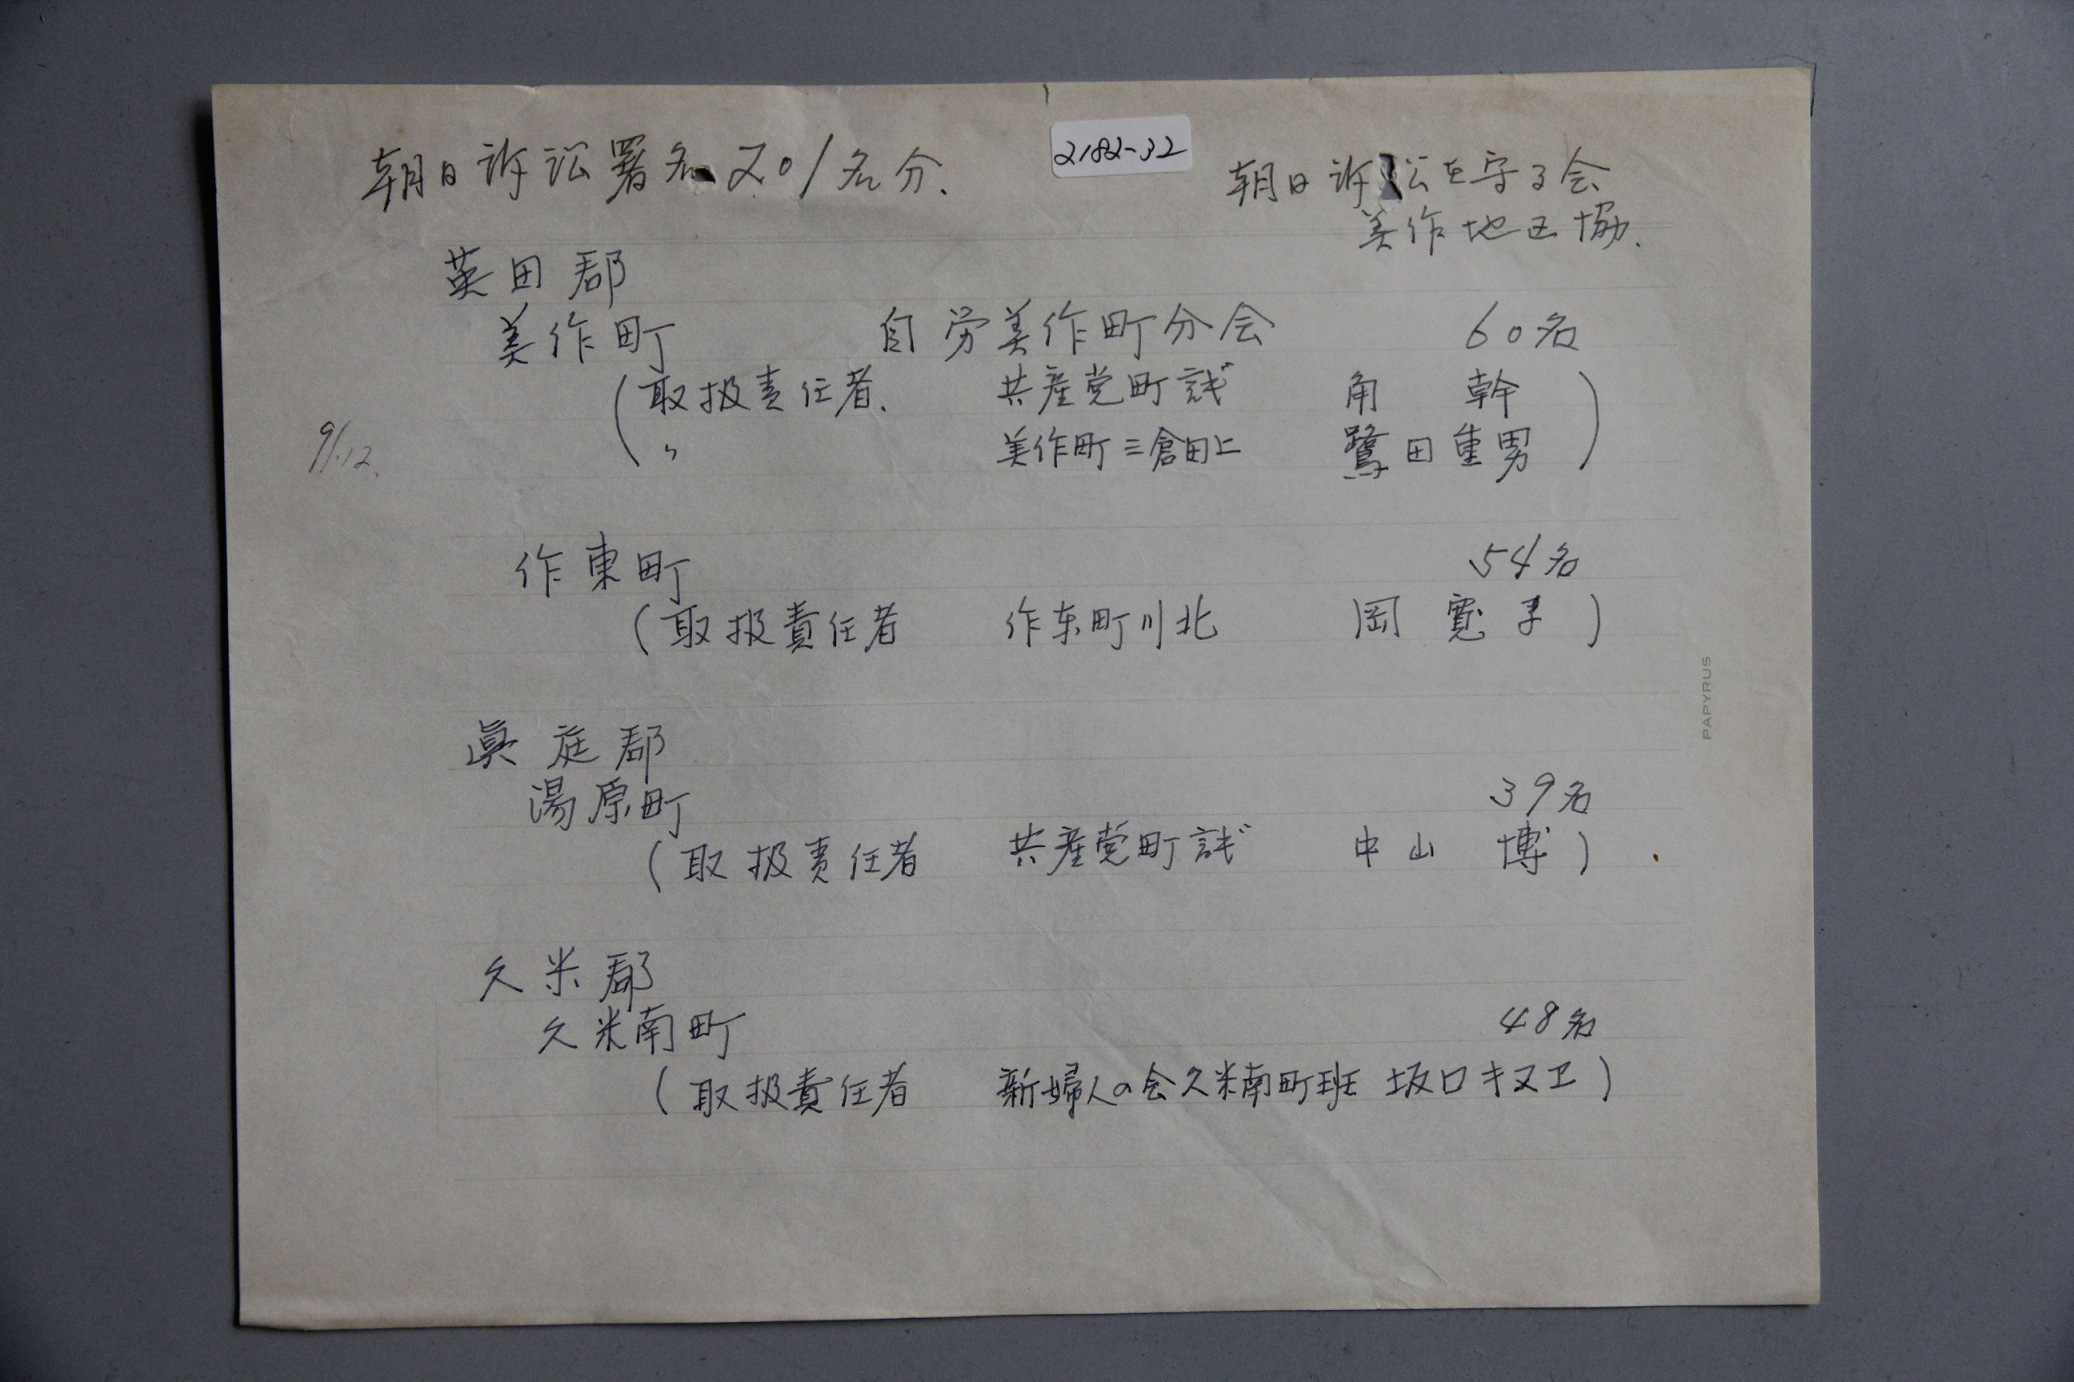 2182-32
朝日訴訟署名 201名分.
朝日訴訟を守る会
美作地区協.
英田郡
美作町 自労美作町分会 60名
(取扱責任者. 共産党町議 角 幹
〃 美作町三倉田上 鷺田重男)
9/12.
作東町 54名
(取扱責任者 作东町川北 岡 寛子)
眞庭郡
湯原町 39名
(取扱責任者 共産党町議 中山 博)
久米郡
久米南町 48名
(取扱責任者 新婦人の会久米南町班 坂口キヌヱ)
PAPYRUS